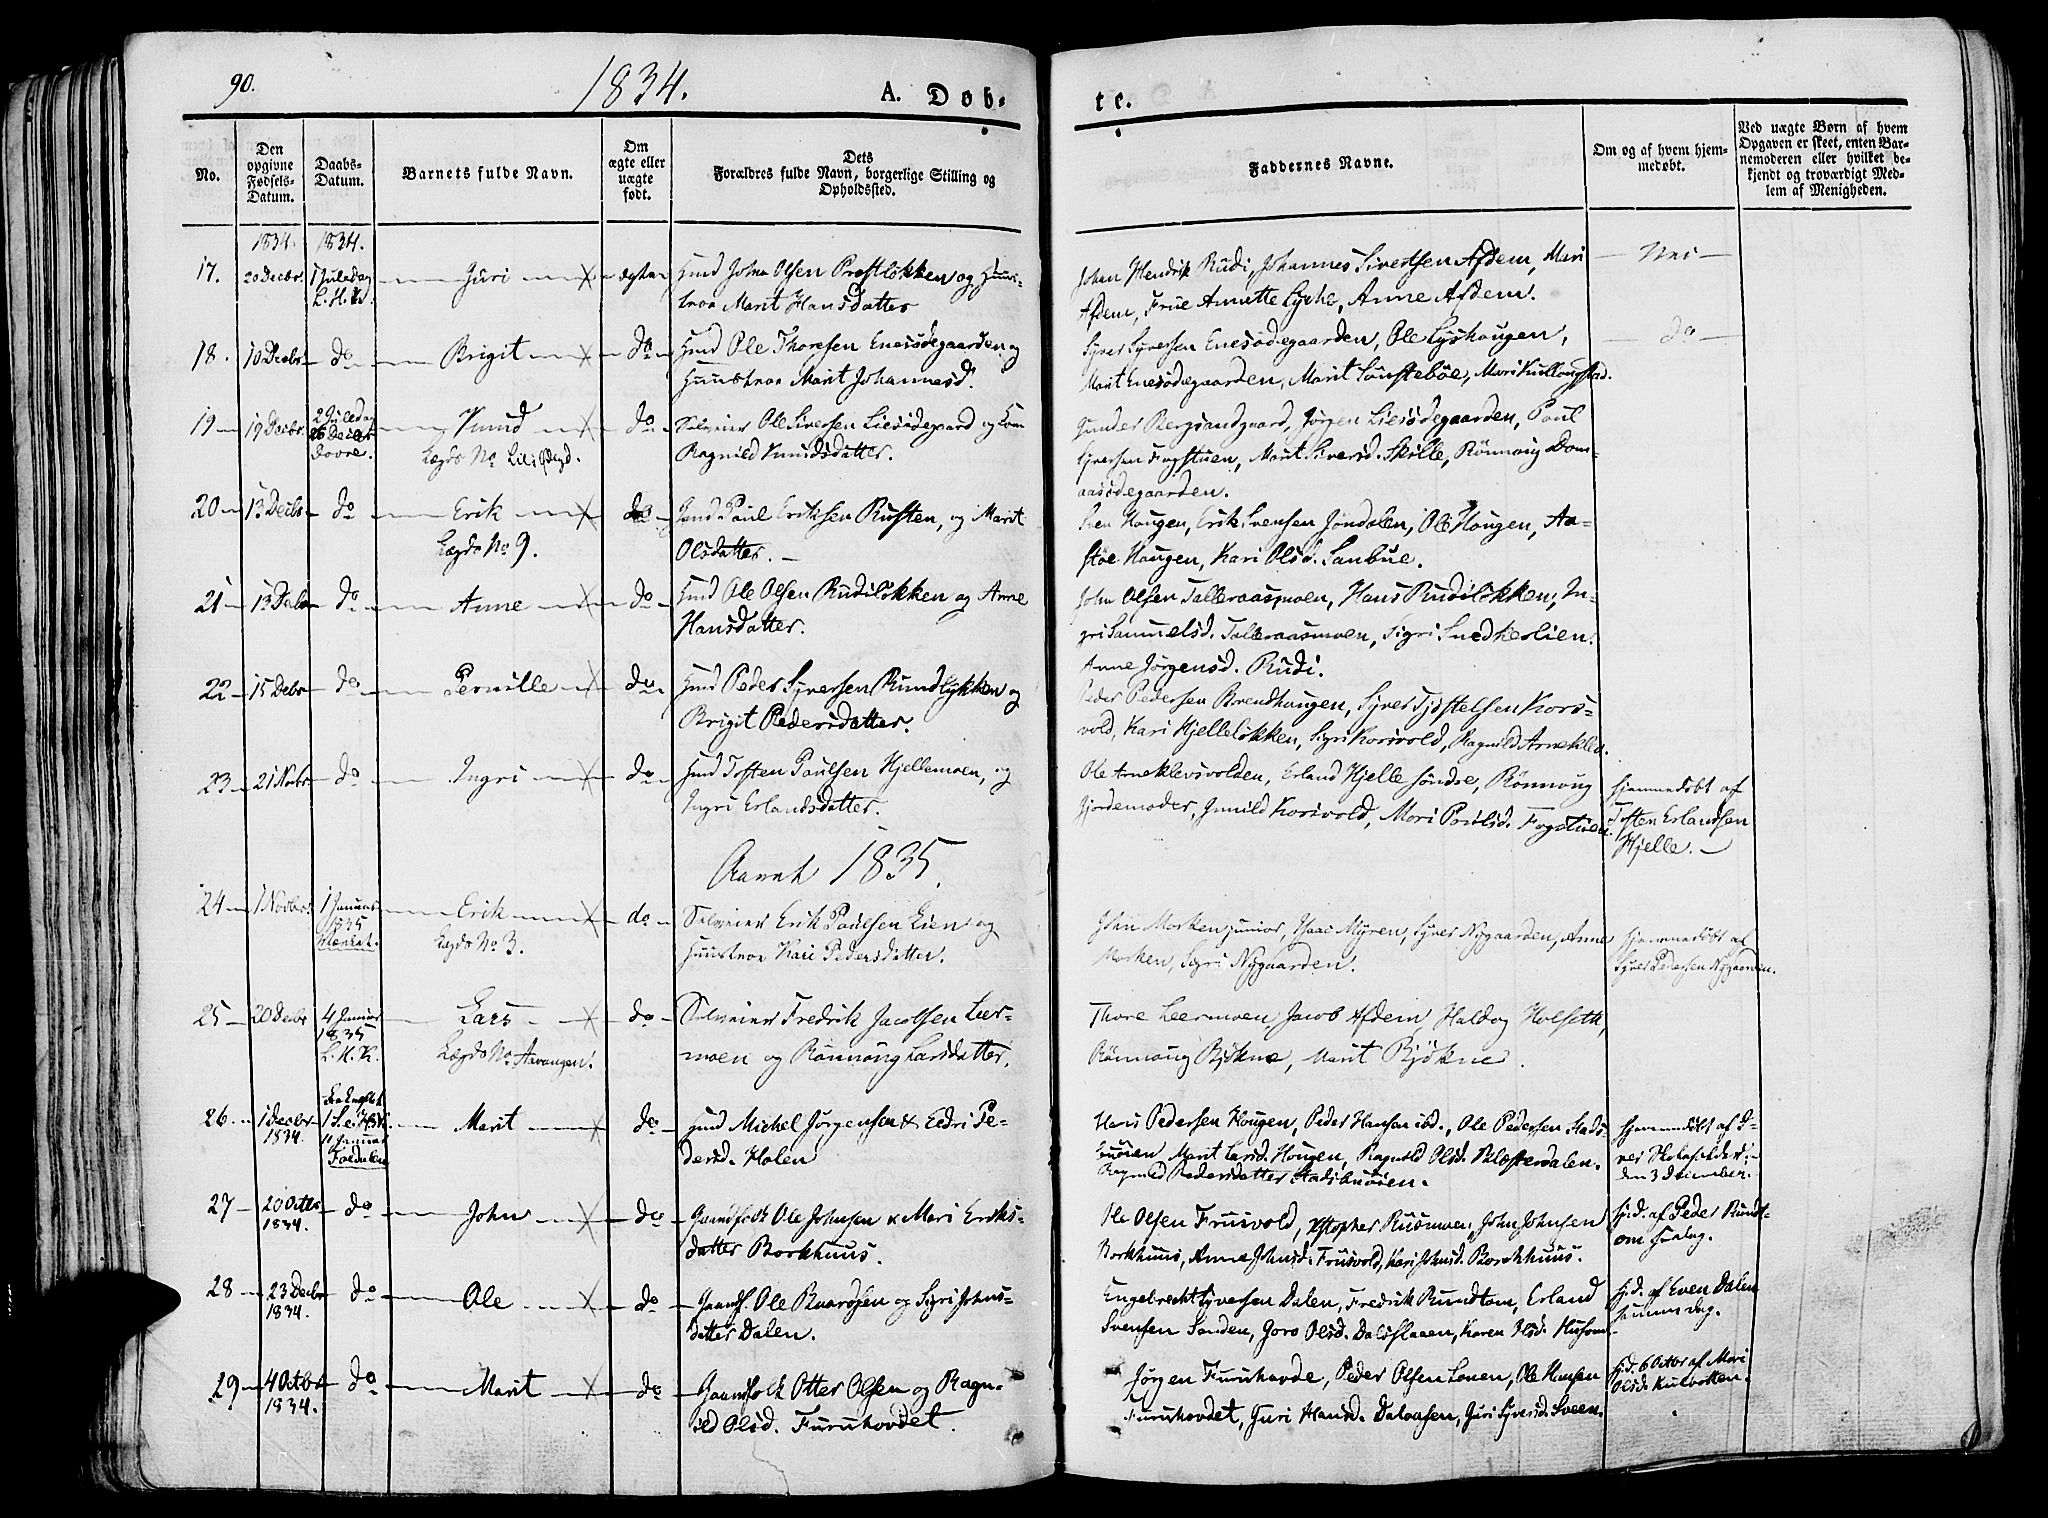 90.
1834.
A. Døb-
te.
No.
Den opgivne Fødsels-Datum.
Daabs-Datum.
Barnets fulde Navn.
Om ægte eller uægte født.
Dets
Forældres fulde Navn, borgerlige Stilling og
Opholdssted.
Faddernes Navne.
Om og af hvem hjem-
medøbt.
Ved uægte Børn af hvem
Opgaven er skeet, enten Bar-
nemoderen eller hvilket be-
kjendt og troværdigt Med-
lem af Menigheden.
1834. 1834.
17. 20 Decbr. 1 Juledag Juri ægte Huusmd John Olsen Prestløkken og Huus-
L. H. K. troe Marit Hansdatter
Johan Hendrik Rudi, Johannes Sivertsen Afdem, Mari Nei
Afdem, Frue Annette Lyche, Anne Afdem.
18. 10 Decbr do Brigit do Hmd Ole Thoresen Enesødegaarden og
Huustroe Marit Johannesd.
Syver Syversen Enesødegaarden, Ole Lyshougen, do
Marit Enesødegaarden, Marit Sønstebøe, Mari Kullongstad.
19 19 Decbr. 2 Juledag Knud do Selveier Ole Siversen Liesødegaard og Kone
26 Decbr Dovre. Lægds No Liesødegd. Ragnild Knudsdatter.
Gunder Bergsandgaard, Jørgen Liesødegaarden, Paul
Syversen Fogstuen, Marit Siversd. Skille, Rønnoug Dom-
aasødegaarden.
20 13 Decbr do Erik do Hmd Paul Eriksen Rusten, og Marit
Lægds No 9. Olsdatter.
Sven Hougen, Erik Svensen Jøndalen, Ole Hougen, Aa-
støe Hougen, Kari Olsd. Sanbue.
21 13 Decbr do Anne do Hmd Ole Olsen Rudiløkken og Anne
Hansdatter.
John Olsen Talleraasmoen, Hans Rudiløkken, In-
gri Samuelsd. Talleraasmoen, Sigri Snedkerlien.
Anne Jørgensd. Rudi.
22 15 Debr do Pernille do Hmd Peder Syversen Rundlykken og
Brigit Pedersdatter.
Peder Pedersen Brendhaugen, Syver Tjøstelsen Kors-
vold, Kari Hjelleløkken, Sigri Korsvold, Ragnild Arneklev.
23 21 Novbr. do Ingri do Hmd Tosten Paulsen Hjellemoen, og
Ingri Erlandsdatter.
Ole Arneklevsvolden, Erland Hjelle søndre, Rønnoug
Gjordemoder, Gunild Korsvold, Mari Poulsd. Fogstuen.
Hjemmedøbt af
Tosten Erlandsen
Hjelle.
Aaret 1835.
24 1 Novbr. 1 Januar Erik do Selveier Erik Paulsen Lien og
1835 Lægds No 3. Huustroe Kari Pedersdatter.
John Morken junior, Isaac Myren, Syver Nygaarden, Anne
Morken, Sigri Nygaarden.
Hjemmedøbt af
Syver Pedersen Nygaarden.
25 20 Decbr 4 Januar Lars do Selveier Fredrik Jacobsen Leer-
1835 L. H. K. Lægds No Aavangen. moen og Rønnoug Larsdatter.
Thore Leermoen, Jacob Afdem, Haldog Holseth,
Rønnoug Bjøkne, Marit Bjøkne.
26 1 Decbr 1834. 11 Januar Foldalen Marit do Hmd Michel Jørgensen & Eedri Pe-
dersd. Holen
Hans Pedersen Hougen, Peder Hansen ibd., Ole Pedersen Stads-
buøien, Marit Larsd. Hougen, Ragnild Olsd. Blæsterdalen.
Ragnild Pedersdatter Stadsbuøien.
Hjemmedøbt af
den 3 December.
27 20 Octbr 1834. do John do Gaardfolk Ole Johnsen & Mari Eriks-
datter Borkhuus.
Ole Olsen Fruvold, Xstopher Rusmoen, John Johnsen
Borkhuus, Anne Johnsd. Frusvold, Kari Johnsd. Borkhuus.
Hj.d. af Peder Rundt-
om
28 23 Decbr 1834. do Ole do Gaardf. Ole Baardsen og Sigri Johns-
datter Dalen.
Engebrecht Syversen Dalen, Fredrik Rundtom, Erland
Svensen Sanden, Goro Olsd. Dalsslaaen, Karen Olsd. Husom.
Hj.d. af Even Dalen
samme dag.
29 4 Octbr 1834. do Marit do Gaardfolk Otter Olsen og Ragn-
ild Olsd. Furuhovdet.
Jørgen Furuhovde, Peder Olsen Lonen, Ole Hansen
Furuhovdet, Guri Hansd. Dalsaasen, Guri Syversd. Sveen.
Hj.d. 6 Octbr af Mari
Olsd. Kulvækken.